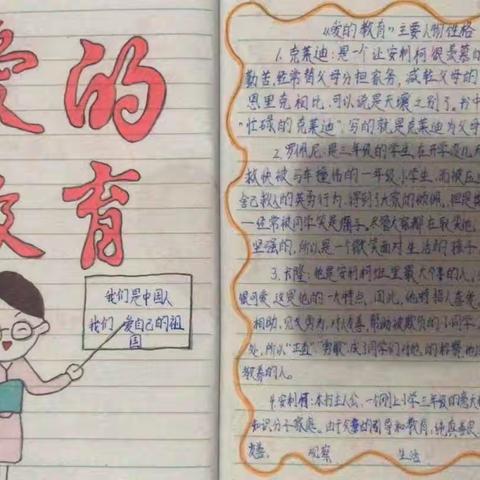 爱的
教育
我们是中国人
我们 爱自己的祖
国
《爱的教育》主要人物性格
1. 克莱迪：是一个让安利柯很羡慕的
勤苦，经常替父母分担家务，减轻父母的
恩里克相比，可以说是天壤之别了。书中
"忙碌的克莱迪"，写的就是克莱迪为父母
2. 罗佩尼：是三年级的学生，在开学没几天
拯救快被马车撞伤的一年级小学生，而被压
舍己救人的英勇行为，得到了大家的敬佩。但是
一经常被同学笑是瘸子，尽管大家都在取笑他，
坚强的，所以是一个微笑面对生活的孩子
3. 卡隆：他是安利柯班里最大个的人，
很可爱，这是他的一大特点，因此，他对招人喜爱
相助，见义勇为，对人友善，帮助被欺负的小同学
处，所以"正直"、"勇敢"，成了同学们对他的称赞，他
教养的人。
4. 安利柯：本书主人公，一个刚上小学三年级的意大利
知识分子家庭。由于父母的引导和教育，纯真善良
友善。 观察 生活